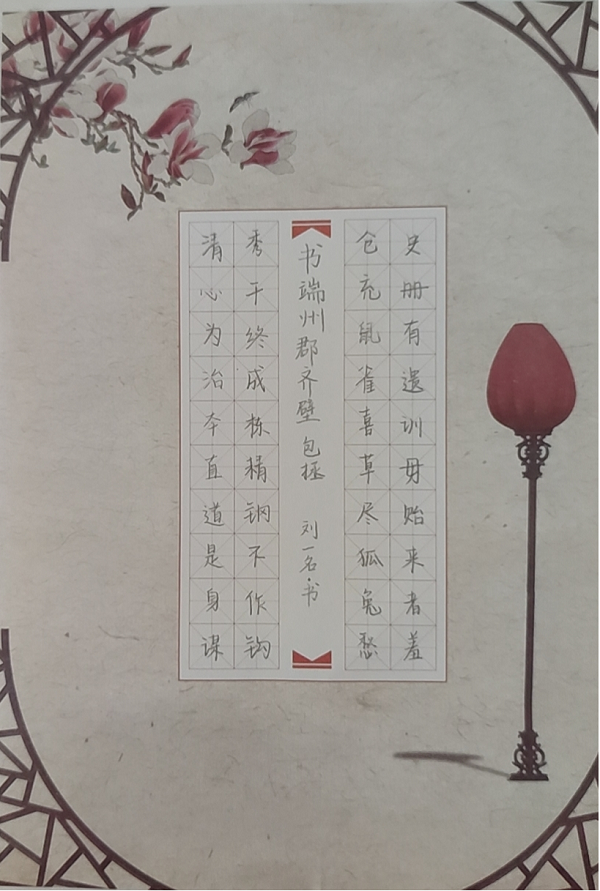 清心为治本直道是身谋
秀干终成栋精钢不作钩
书端州郡齐壁 包拯 刘一名书
仓充鼠雀喜草尽狐兔愁
史册有遗训毋贻来者羞